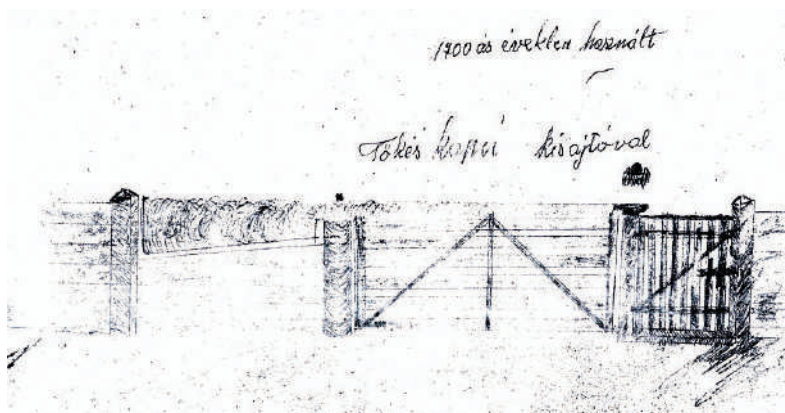 1700 ás években használt
Tőkés kapu kisajtóval